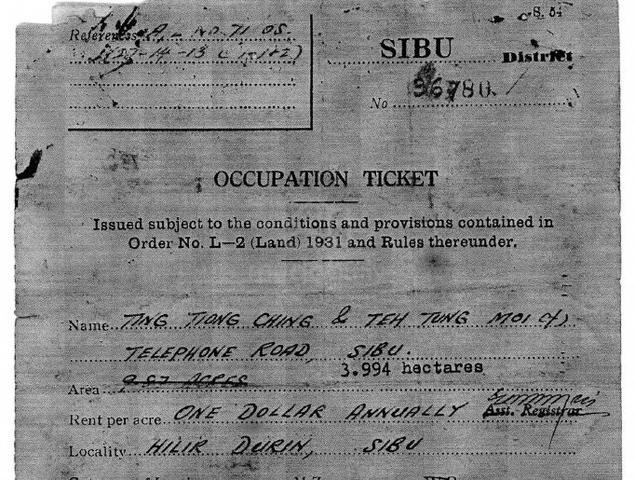 S. 54
References A, L No. 71 OS.
SIBU District
No 96780.
OCCUPATION TICKET
Issued subject to the conditions and provisions contained in
Order No. L—2 (Land) 1931 and Rules thereunder.
Name TING TIONG CHING & TEH TUNG MOI (f)
TELEPHONE ROAD, SIBU.
3.994 hectares
Area 9.87 ACRES
Rent per acre ONE DOLLAR ANNUALLY
Asst. Registrar
Locality HILIR DURIN, SIBU